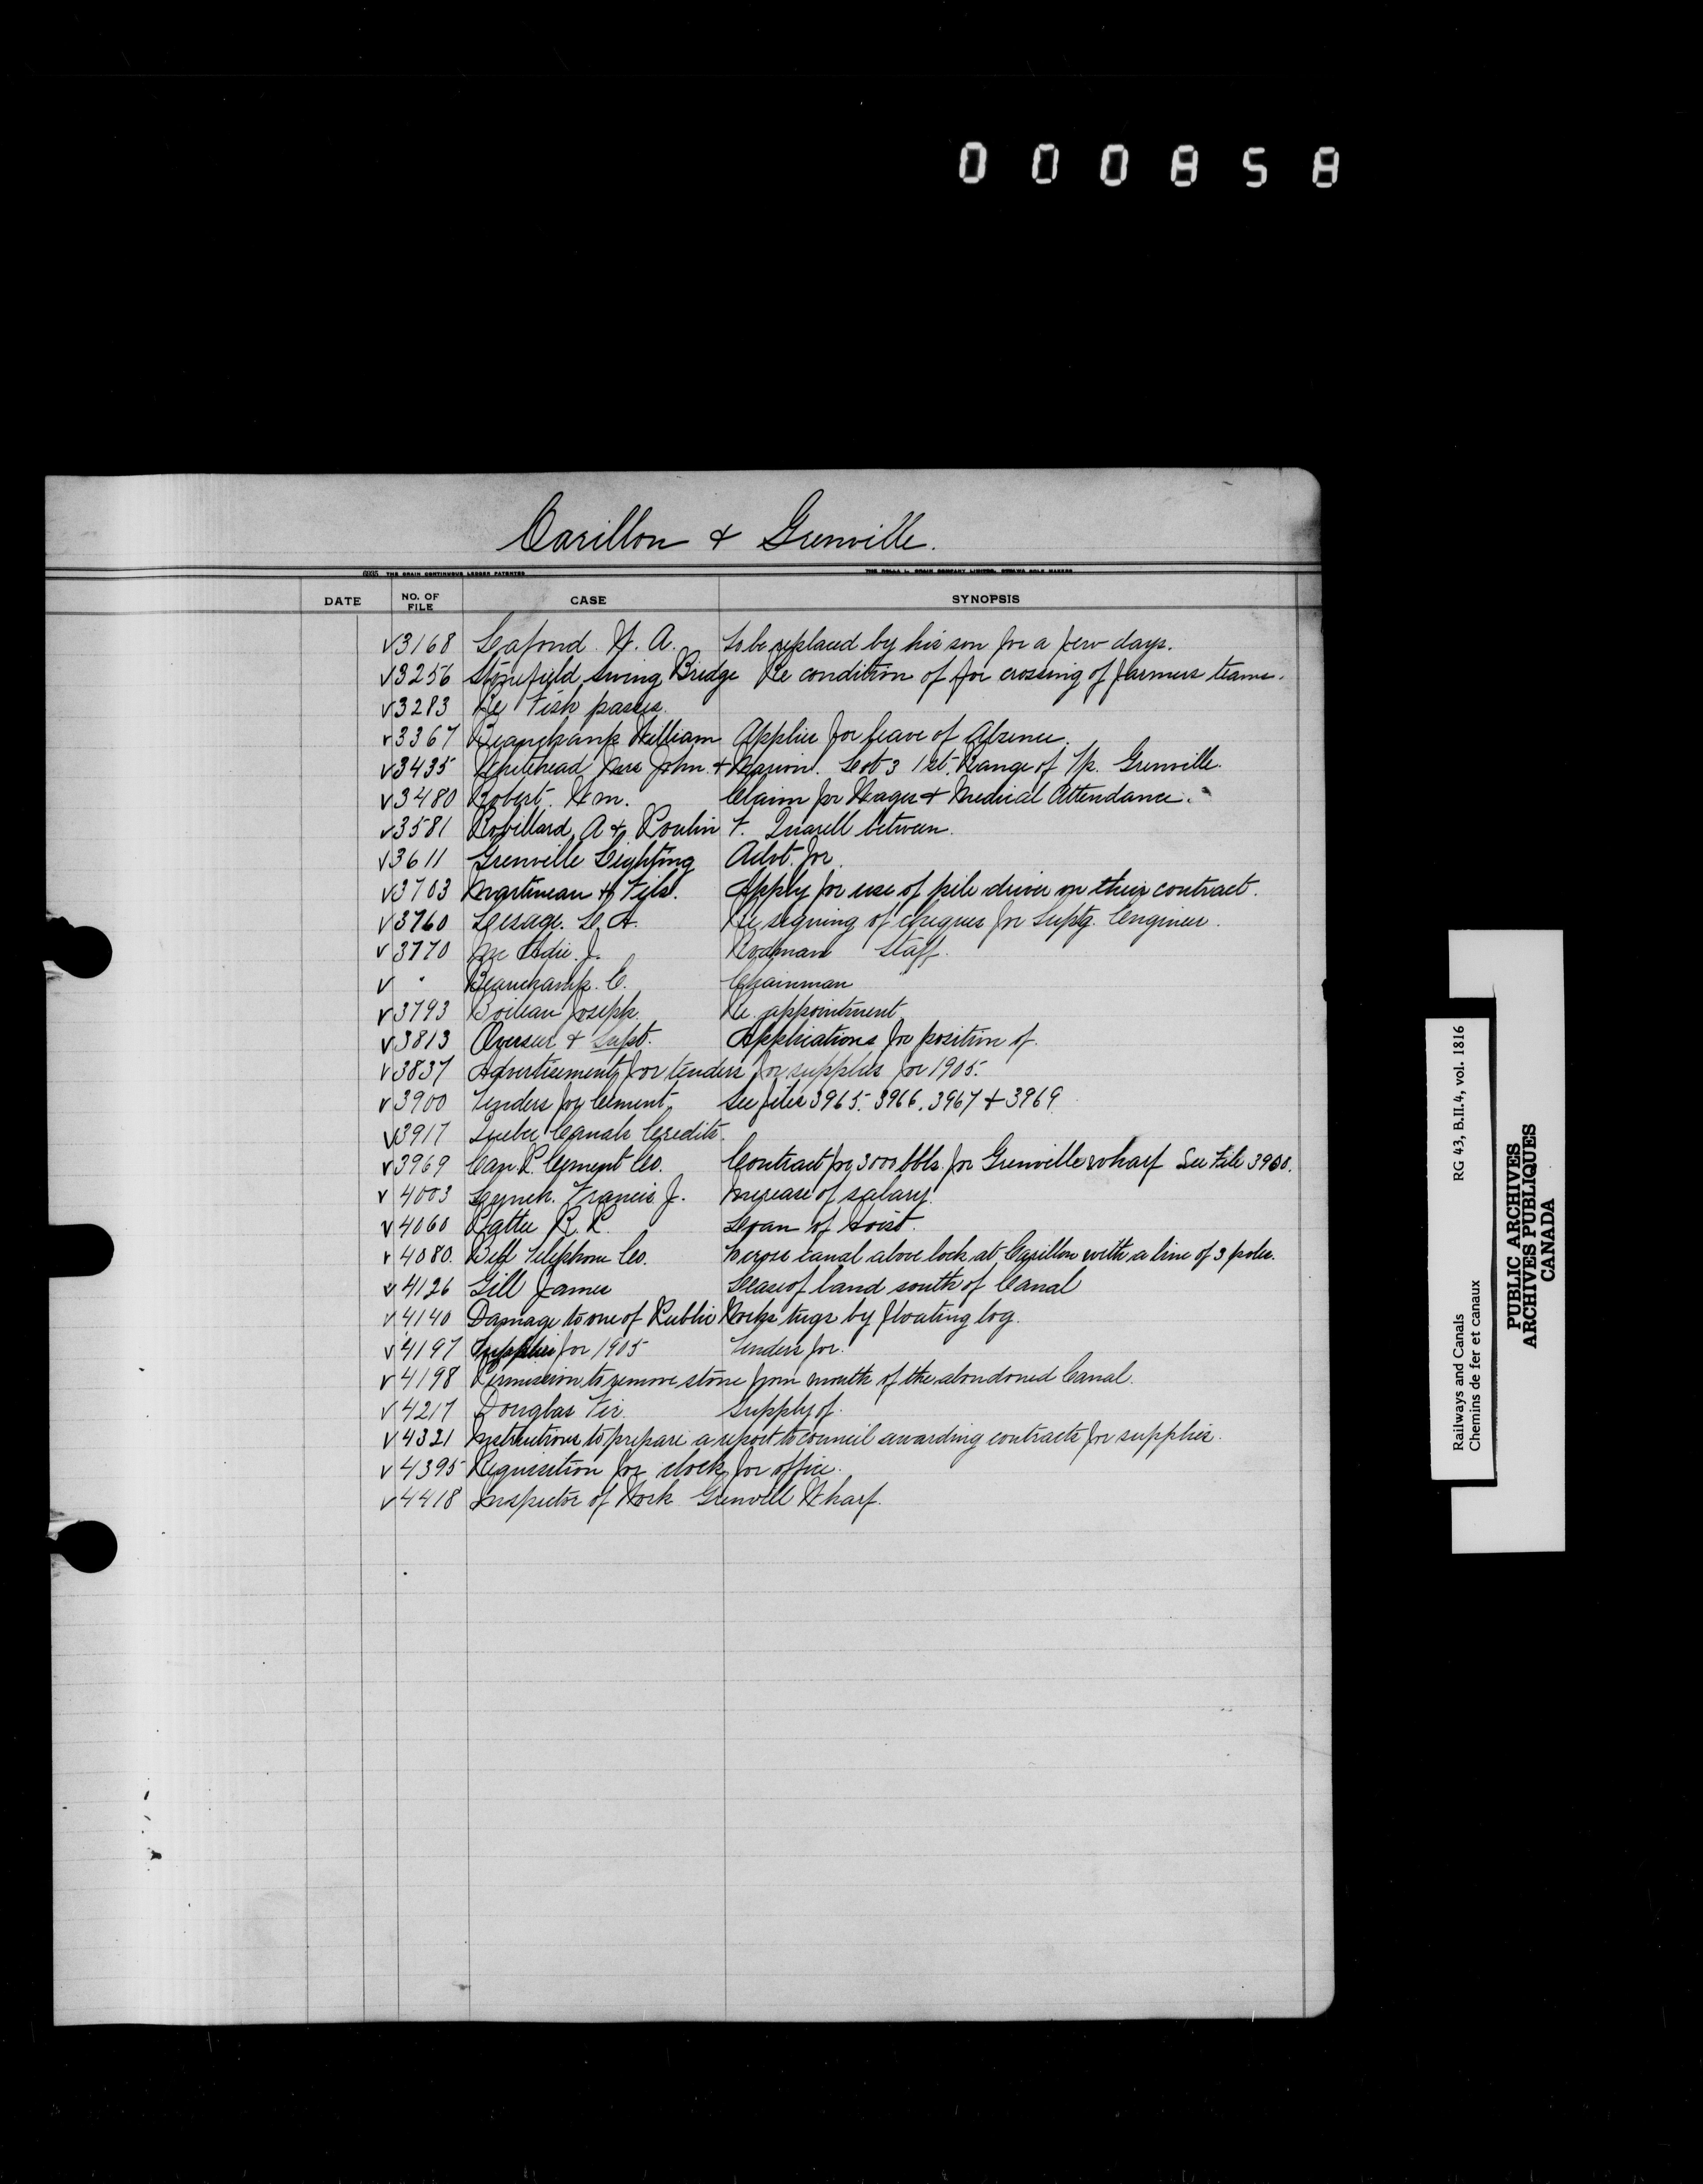 000858
Carillon & Grenville.
THE CRAIN CONTINUOUS LEDGER PATENTED
THE ROLLA L. CRAIN COMPANY LIMITED, OTTAWA SOLE MAKERS
DATE NO. OF FILE CASE SYNOPSIS
✓3168 Lafond H. A. To be replaced by his son for a few days.
✓3256 Stonefield Swing Bridge Re condition of for crossing of farmers teams.
✓3283 Re Fish passes.
✓3367 Beauchamp William Applies for leave of Absence.
✓3435 Whitehead Mrs John & Marion. Lot 3 1st. Range of Tp. Grenville.
✓3480 Robert. Wm. Claim for Wages & Medical Attendance.
✓3581 Robillard A & Poulin F. Quarell between.
✓3611 Grenville Lighting Advt. for.
✓3703 Martineau & Fils. Apply for use of pile driver on their contract.
✓3760 Lesage. L. A. Re signing of cheques for Suptg. Engineer.
✓3770 J. Rodman Staff.
✓ " Beauchamp. C. Chainman
✓3793 Boileau Joseph. Re. appointment
✓3813 Overseer & Supt. Applications for position of.
✓3837 Advertisements for tenders for supplies for 1905.
✓3900 Tenders for Cement. See files 3965. 3966. 3967 & 3969
✓3917 Quebec Canals Credits.
✓3969 Can P. Cement Co. Contract for 3000 bbls. for Grenville wharf See File 3900.
✓4003 Lynch. Francis J. Increase of salary.
✓4060 Pattee R. P. Loan of hoist.
✓4080. Bell Telephone Co. To cross canal above lock at Carillon with a line of 3 poles.
✓4126 Gill James Lease of land south of Canal
✓4140 Damage to one of Public Works tugs by floating log.
✓4197 Supplies for 1905 Tenders for.
✓4198 Permission to remove stone from mouth of the abondoned Canal.
✓4217 Douglas Fir. Supply of.
✓4321 Instructions to prepare a report to council awarding contracts for supplies.
✓4395 Requisition for clock for office.
✓4418 Inspector of Work Grenvill Wharf.
Railways and Canals RG 43, B.II.4, vol. 1816
Chemins de fer et canaux
PUBLIC ARCHIVES
ARCHIVES PUBLIQUES
CANADA